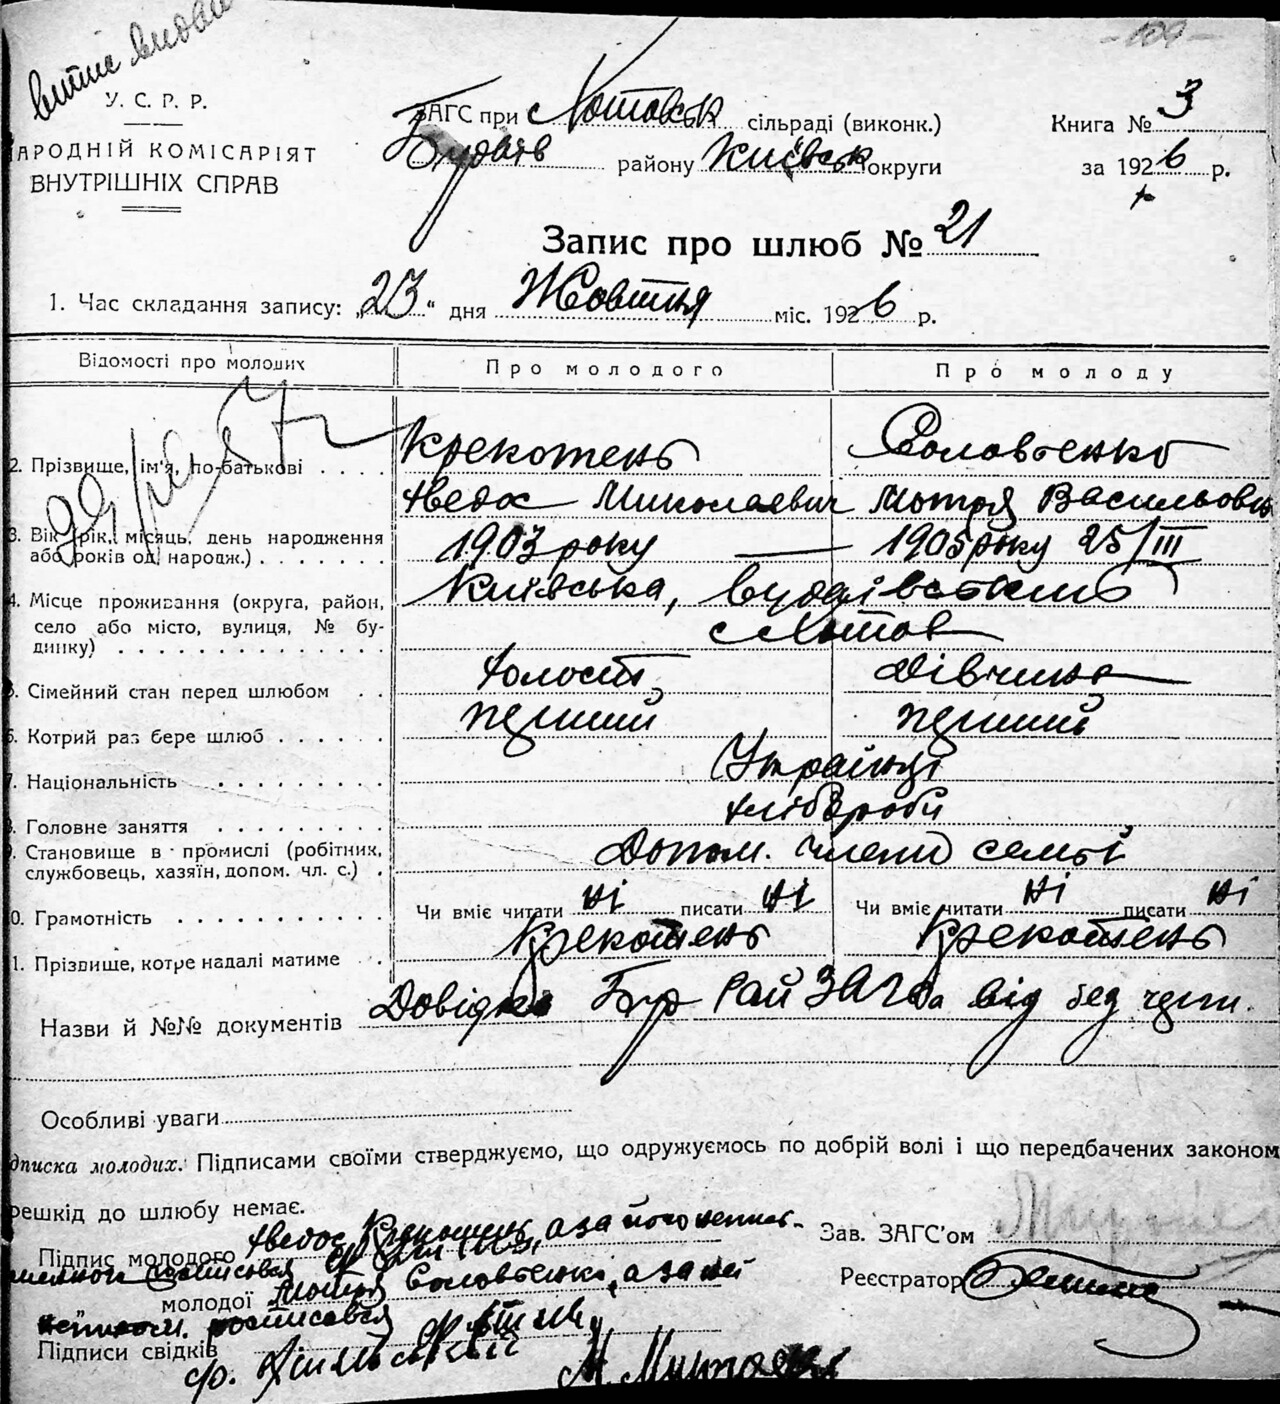 витис видан
- 109 -
У. С. Р. Р.
НАРОДНІЙ КОМІСАРІЯТ
ВНУТРІШНІХ СПРАВ
ЗАГС при Хотовськ сільраді (виконк.)
Будаїв району Київськ округи
Книга № 3
за 1926 р.
Запис про шлюб № 21
1. Час складання запису: „23“ дня Жовтня міс. 1926 р.
Відомості про молодих Про молодого Про молоду
2. Прізвище, ім'я, по-батькові . . . . Крекотень Соловьенко
Хведос Миколаевич Мотря Васильовн
3. Вік (рік, місяць, день народження
або років од народж.) . . . . . . . 1903 року — 1905 року 25/III
4. Місце проживання (округа, район, Київська, Будаївсько
село або місто, вулиця, № бу- с Хотов
динку) . . . . . . . . . . . . . .
5. Сімейний стан перед шлюбом . . Холост Дівчина
6. Котрий раз бере шлюб . . . . . . перший перший
7. Національність . . . . . . . . . Українці
8. Головне заняття . . . . . . . . . хлібороби
9. Становище в промислі (робітник,
службовець, хазяїн, допом. чл. с.) . Допом. члени семьї
10. Грамотність . . . . . . . . . . . Чи вміє читати ні писати ні Чи вміє читати ні писати ні
11. Прізвище, котре надалі матиме . . Крекотень Крекотень
Назви й №№ документів Довідка Бур Рай ЗАГСа від
Особливі уваги
дписка молодих. Підписами своїми стверджуємо, що одружуємось по добрій волі і що передбачених законом
решкід до шлюбу немає.
Підпис молодого Хведос Крекотень, а за його непис-
Зав. ЗАГС'ом
росписався
молодої Мотря Соловьенко, а за неї
Реєстратор
росписався
Підписи свідків